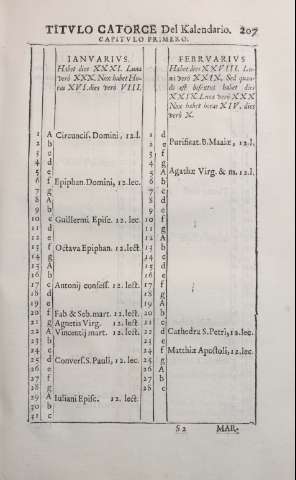 TITVLO CATORCE Del Kalendario. 207
CAPITVLO PRIMERO.
IANVARIVS.
Habet dies XXXI. Luna
verò XXX. Nox habet Ho-
ras XVI. dies verò VIII.
1 A Circuncis. Domini, 12.l.
2 b
3 c
4 d
5 e
6 f Epiphan. Domini, 12.lec.
7 g
8 A
9 b
10 c Guillermi Episc. 12.lec.
11 d
12 e
13 f Octava Epiphan. 12.lect
14 g
15 A
16 b
17 c Antonij confess. 12.lect.
18 d
19 e
20 f Fab & Seb. mart. 12.lect.
21 g Agnetis Virg. 12.lect
22 A Vincentij mart. 12.lect.
23 b
24 c
25 d Convers. S. Pauli, 12.lec.
26 e
27 f
28 g
29 A Iuliani Episc. 12.lect.
30 b
31 c
FEBRVARIVS
Habet dies XXVIII. Lu-
na verò XXIX. Sed quan-
do est bisextus habet dies
XXIX. Luna verò XXX
Nox habet horas XIV. dies
verò X.
1 d
2 e Purificat. B. Mariæ, 12.l.
3 f
4 g
5 A Agathæ Virg. & m. 12.l.
6 b
7 c
8 d
9 e
10 f
11 g
12 A
13 b
14 c
15 d
16 e
17 f
18 g
19 A
20 b
21 c
22 d Cathedra S. Petri, 12.lec.
23 e
24 f Matthiæ Apostoli, 12.lec.
25 g
26 A
27 b
28 c
S 2 MAR-